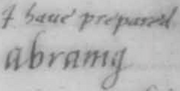 I haue prepared
abramg